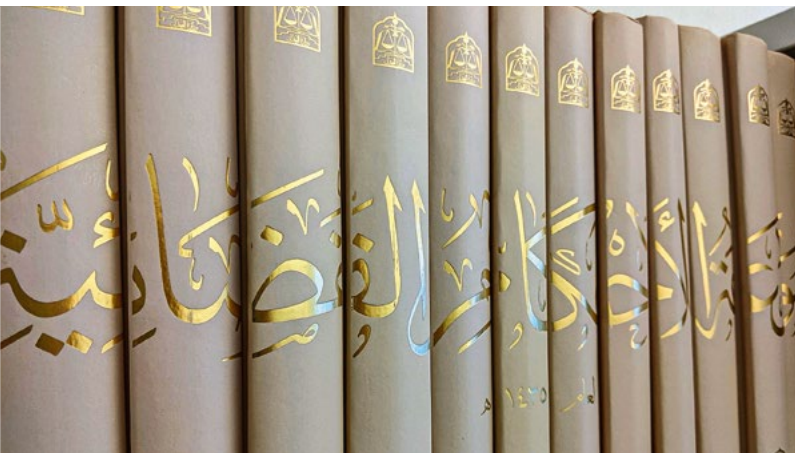 الأحكام القضائيّة
لعام ١٤٣٥ هـ